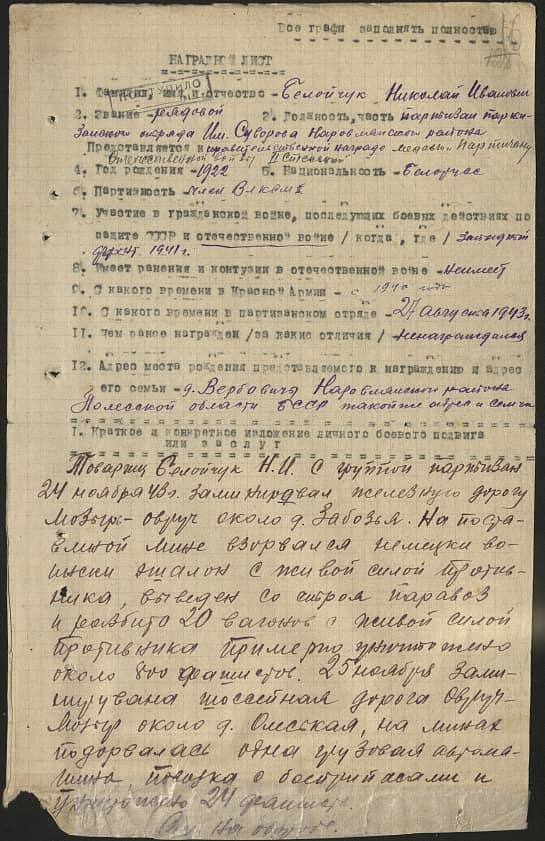 Все графы заполнять полностью
НАГРАДНОЙ ЛИСТ
1. Фамилия, имя и отчество - Белойчук Николай Иванович
2. Звание - рядовой 2. Должность, часть партизан парти-
занского отряда Им. Суворова Наровлянского района
Представляется к правительственной награде медаль "Партизану
Отечественной войны II степени"
4. Год рождения - 1922 5. Национальность - Белорус
6. Партийность - член Влксм
7. Участие в гражданской войне, последующих боевых действиях по
защите СССР и отечественной войне / когда, где / Западный
фронт 1941 г.
8. Имеет ранения и контузии в отечественной войне - неимеет
9. С какого времени в Красной Армии - с 1940 года
10. С какого времени в партизанском отряде - 27 августа 1943 г.
11. Чем ранее награжден /за какие отличия / - ненаграждался
12. Адрес места рождения представляемого к награждению и адрес
его семьи - д. Вербовичи Наровлянского района
Полесской области БССР такой же адрес и семьи
I. Краткое и конкретное изложение личного боевого подвига
или заслуг
Товарищ Белойчук Н.И. с группой партизан
24 ноября 43 г. заминировал железную дорогу
Мозырь-Овруч около д. Забозья. На поста-
вленой мине взорвался немецки во-
ински эшалон с живой силой против-
ника, выведен со строя паравоз
и разбито 20 вагонов с живой силой
противника примерно уничтожено
около 800 фашистов. 25 ноября зами-
нирувана шоссейная дорога Овруч-
Мозыр около д. Омеская, на минах
подорвалась одна грузовая автома-
шина повозка с боеприпасами и
уничтожено 24 фашиста.
См. на обороте.